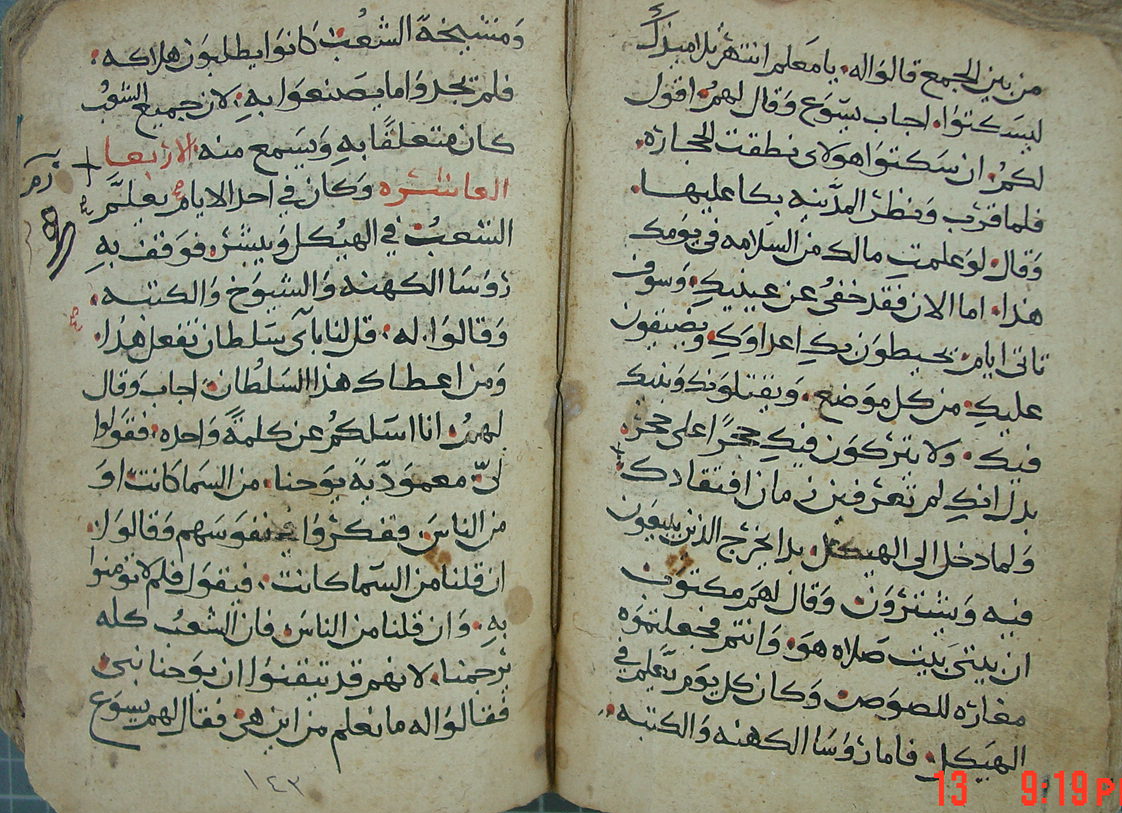 من بين الجمع قالوا له. يا معلم انتهر تلاميذك
ليسكتوا. اجاب يسوع وقال لهم. اقول
لكم. ان سكتوا هولاى نطقت الحجاره.
فلما قرب ونظر المدينه بكا عليها.
وقال. لو علمتِ مالك من السلامه فى يومك
هذا. اما الان فقد خفىُ عن عينيكِ. وسوف
تاتى ايام. يحيطون بكِ اعداوكِ ويضيقون
عليكِ من كل موضع. ويقتلونك وبنيك
فيك. ولا يتركون فيكِ حجرًا على حجر.
بدل انكِ لم تعرفين زمان افتقادك.
ولما دخل الى الهيكل. بدا يخرج الذين يبيعون
فيه ويشترون. وقال لهم مكتوب
ان بيتى بيت صلاه هو. وانتم فجعلتموه
مغاره للصوص. وكان كل يوم يعلم في
الهيكل. فاما رؤسا الكهنه والكتبه.
ومشيخة الشعب كانوا يطلبون هلاكه.
فلم يجدوا ما يصنعوا بهِ. لان جميع الشعب
كان متعلقًا بهِ ويسمع منه. الاربعا
العاشره وكان في احد الايام يعلم
الشعب في الهيكل ويبشر. فوقف بهِ
رؤسا الكهنه والشيوخ والكتبه.
وقالوا له. قل لنا باى سلطان تفعل هذا.
ومن اعطاك هذا السلطان. اجاب وقال
لهم. انا اسالكم عن كلمةً واحده. فقولوا
لىّ. معموديةً يوحنا. من السما كانت او
من الناس. ففكروا في نفوسهم وقالوا.
ان قلنا من السما كانت. فيقول فلم لا تومنوا
بهِ. وان قلنا من الناس. فان الشعب كله
ترجمنا. لانهم قد تيقنوا ان يوحنا نبى.
فقالوا له ما نعلم من اين هى. فقال لهم يسوع
١٤٣
13 9:19 PM